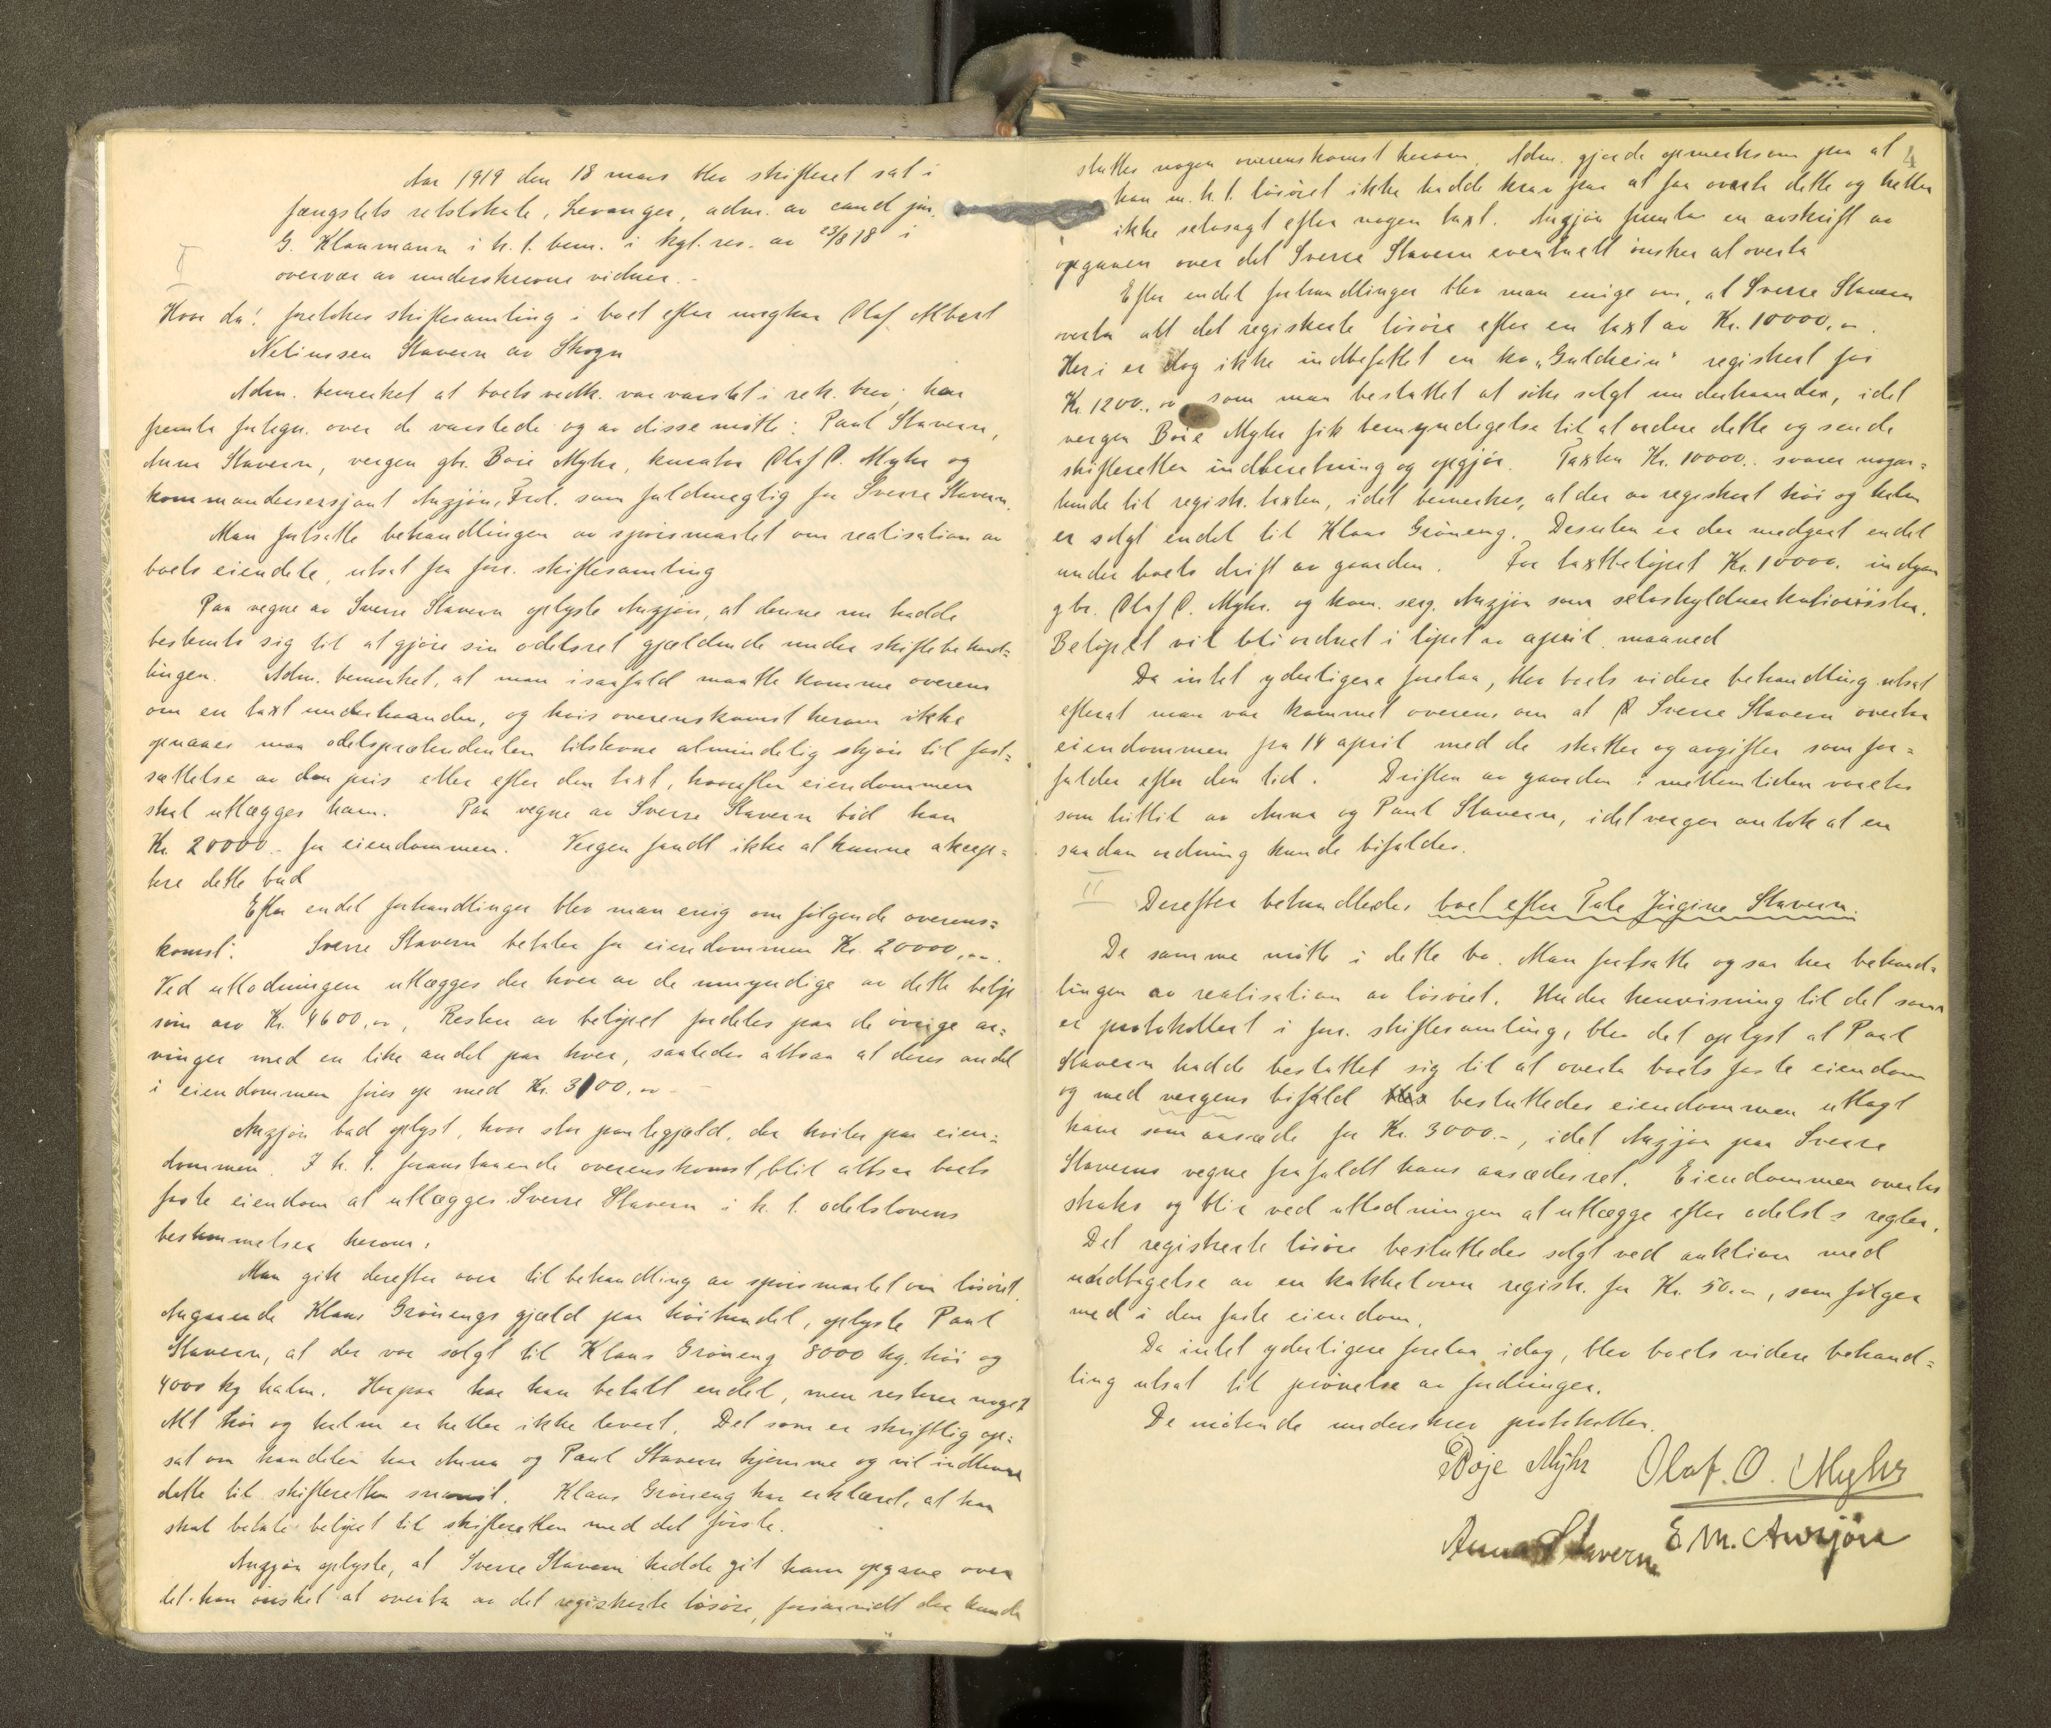 Aar 1919 den 18 mars blev skifteret sat i
fængslets retslokale, Levanger, adm. av cand jur.
G. Klaumann i h. t. bem. i kgl. res. av 23/8 18 i
I
overvær av underskrevne vidner. -
Hvor da! foretokes skiftesamling i boet efter ungkar Olaf Albert
Neliussen Stavern av Skogn
Adm. bemerket at boets vedk. var varslet i rek. brev; han
fremla fortegn. over de varslede og av disse møtte: Paul Stavern,
Anna Stavern, vergen gbr. Boie Myhr, kurator Olaf O. Myhr og
kommandersersjant Auzjøn, Frol. som fuldmægtig for Sverre Stavern.
Man fortsatte behandlingen av spørsmaalet om realisation av
boets eiendele, utsat fra forr. skiftesamling
Paa vegne av Sverre Stavern oplyste Auzjøn, at denne nu hadde
bestemt sig til at gjøre sin odelsret gjældende under skiftebehand=
lingen. Adm. bemerket, at man isaafald maatte komme overens
om en taxt underhaanden, og hvis overenskomst herom ikke
opnaaes maa odelsprætendenten tilstevne almindelig skjøn til fast=
sættelse av den pris eller efter den taxt, hvorefter eiendommen
skal utlægges ham. Paa vegne av Sverre Stavern bød han
Kr. 20000.- for eiendommen. Vergen fandt ikke at kunne aksep=
tere dette bud
Efter endel forhandlinger blev man enig om følgende overens=
komst: Sverre Stavern betaler for eiendommen Kr. 20000,00.
Ved utlodningen utlægges der hver av de umyndige av dette beløp
som arv Kr. 4600,00, Resten av beløpet fordeles paa de øvrige ar=
vinger med en like andel paa hver, saaledes altsaa at deres andel
i eiendommen føres op med Kr. 3100,00 -
Auzjøn bad oplyst, hvor stor pantegjæld, der hviler paa eien=
dommen. I h. t. foranstaaende overenskomst blir altsaa boets
faste eiendom at utlægges Sverre Stavern i h. t. odelslovens
bestemmelser herom.
Man gik derefter over til behandling av spørsmaalet om løsøret.
Angaaende Klaus Grønengs gjæld paa høihandel, oplyste Paul
Stavern, at der var solgt til Klaus Grøneng 8000 kg. høi og
4000 kg halm. Herpaa har han betalt endel, men resterer noget
Alt høi og halm er heller ikke levert. Det som er skriftlig op=
sat om handelen har Anna og Paul Stavern hjemme og vil indlevere
dette til skifteretten snarest. Klaus Grøneng har erklæret, at han
skal betale beløpet til skifteretten med det første.
Auzjøn oplyste, at Sverre Stavern hadde git ham opgave over
det han ønsket at overta av det registrerte løsøre, forsaavidt der kunde
4
sluttes nogen overenskomst herom. Adm. gjorde opmerksom paa at
han m. h. t. løsøret ikke hadde krav paa at faa overta dette og heller
ikke selvsagt efter nogen taxt. Auzjøn fremla en avskrift av
opgaven over det Sverre Stavern eventuelt ønsker at overta
Efter endel forhandlinger blev man enige om, at Sverre Stavern
overta alt det registrerte løsøre efter en taxt av Kr. 10000,00.
Heri er dog ikke indbefattet en ko "Guldrein" registrert for
Kr. 1200.00 som man besluttet at søke solgt underhaanden, idet
vergen Boie Myhr fik bemyndigelse til at ordne dette og sende
skifteretten indberetning og opgjør. Taxten Kr. 10000.. svarer nogen=
lunde til registr. taxten, idet bemerkes, at der av registrert høi og halm
er solgt endel til Klaus Grøneng. Desuten er der medgaat endel
under boets drift av gaarden. For taxtbeløpet Kr. 10000. indgaar
gbr. Olaf O. Myhr. og kom. serg. Auzjøn som selvskyldnerkautionister.
Beløpet vil bli ordnet i løpet av april maaned
Da intet yderligere forelaa, blev boets videre behandling utsat
efterat man var kommet overens om at Sverre Stavern overtar
eiendommen fra 14 april med de skatter og avgifter som for=
falder efter den tid. Driften av gaarden i mellemtiden varetas
som hittil av Anna og Paul Stavern, idet vergen antok at en
saadan ordning kunde bifaldes.
II
Derefter behandledes boet efter Tale Jørgine Stavern.
De samme møtte i dette bo. Man fortsatte ogsaa her behand=
lingen av realisation av løsøret. Under henvisning til det som
er protokollert i forr. skiftesamling, blev det oplyst at Paul
Stavern hadde besluttet sig til at overta boets faste eiendom
og med vergens bifald besluttedes eiendommen utlagt
ham som aasæde for Kr. 3000.-, idet Auzjøn paa Sverre
Staverns vegne frafaldt hans aasædesret. Eiendommen overtas
straks og blir ved utlodningen at utlægge efter odelsl.s regler.
Det registrerte løsøre besluttedes solgt ved auktion med
undtagelse av en kakkelovn registr. for Kr. 50.00, som følger
med i den faste eiendom.
Da intet yderligere forelaa idag, blev boets videre behand=
ling utsat til prøvelse av fordringer.
De møtende underskrev protokollen.
Boje Myhr Olaf. O. Myhr
Anna Stavern E. M. Auzjøn